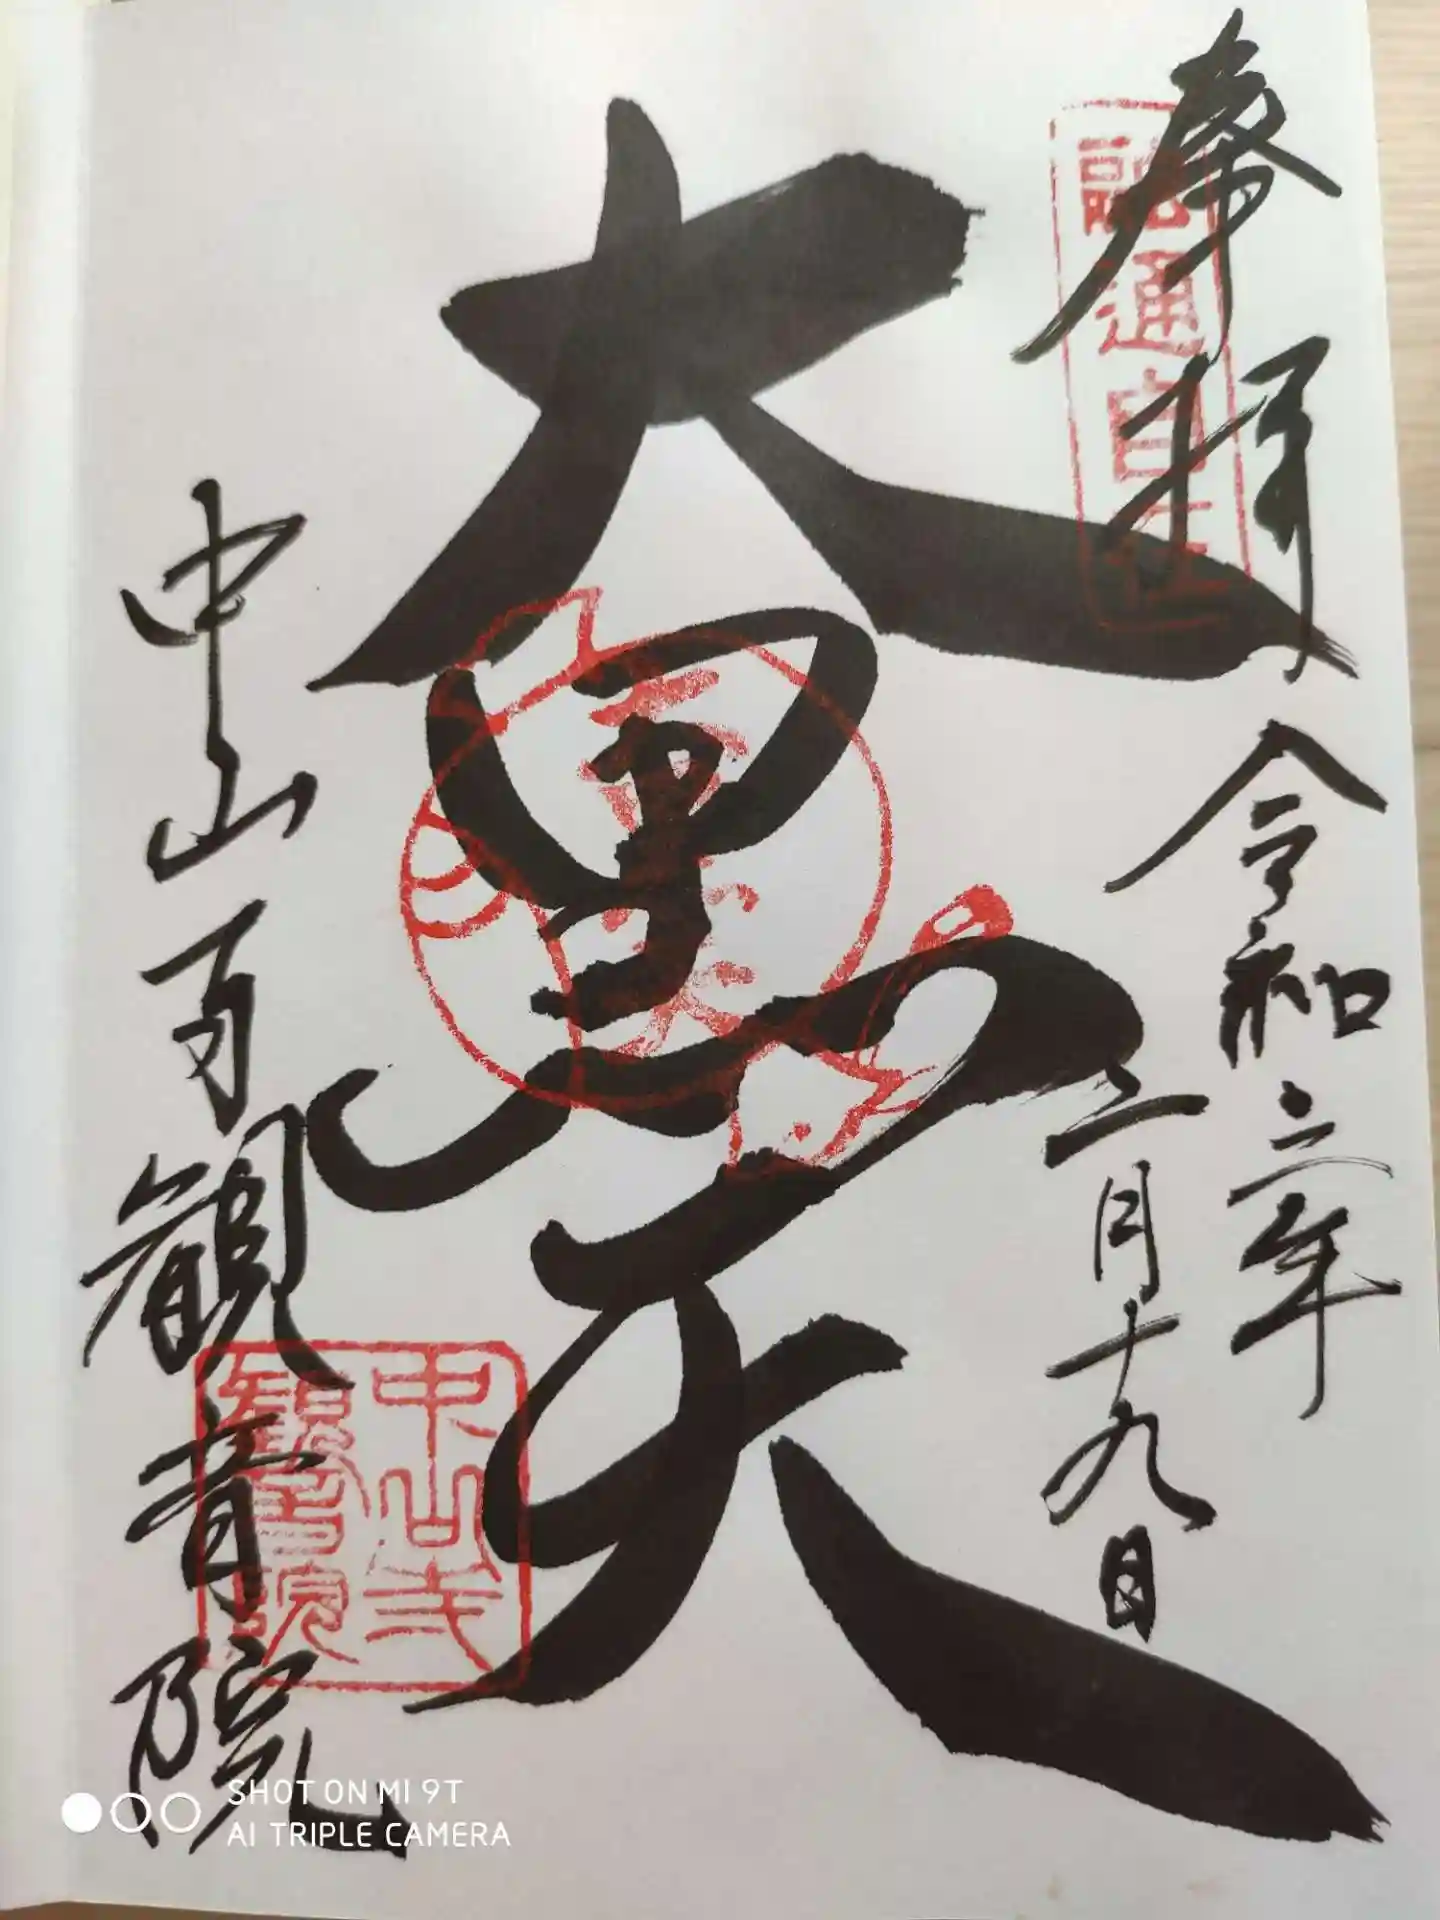 奉拝
融通自在
令和六年
三月十九日
大黒天
中山寺観音院
中山寺
観音院
SHOT ON MI 9T
AI TRIPLE CAMERA